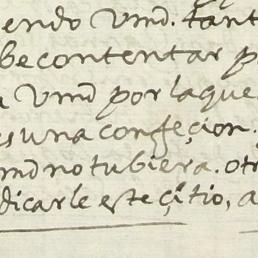 endo Vmd. tant
be contentar p
a Vmd por laque
es una confeçion.
md no tubiera. otr
dicarle este çitio, a